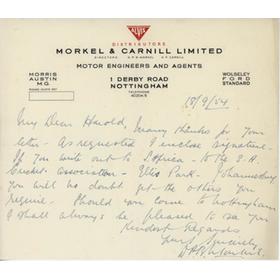 ALVIS
DISTRIBUTORS
MORKEL & CARNILL LIMITED
MOTOR ENGINEERS AND AGENTS
MORRIS
AUSTIN
M.G.
1 DERBY ROAD
NOTTINGHAM
TELEPHONE
WOLSELEY
FORD
STANDARD
18/9/54
My Dear Harold, many thanks for your
letter - As requested I enclose signature -
If you write out to S. Africa - to the S.A.
Cricket Association - Ellis Park - Johannesburg
you will no doubt get the others you
require. Should you come to Nottingham
I shall always be pleased to see you
Kindest Regards
Yours Sincerely